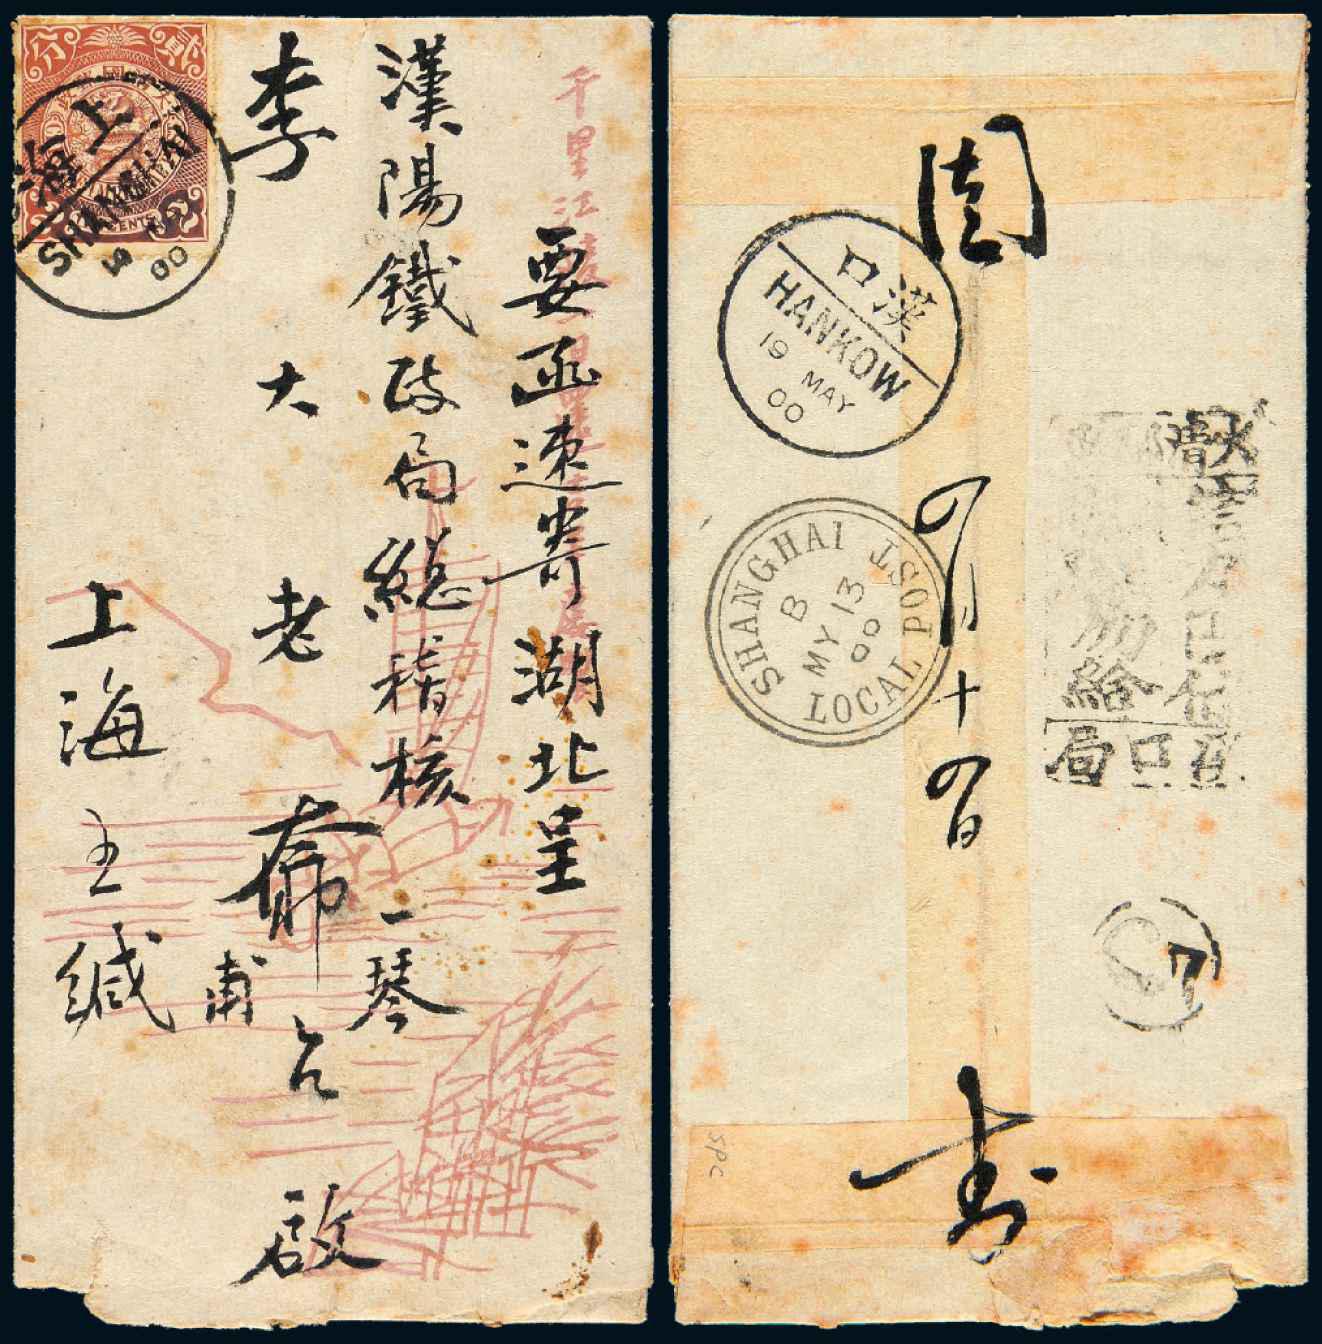 要函速寄湖北呈
漢陽鐵政局總稽核
李大老爺 一琴 甫 台啟
上海王緘
千里江陵
貳分
CENTS
上海
SHANGHAI
00
固
四月十四日
封
漢口
HANKOW
19 MAY
00
SHANGHAI LOCAL POST
B
MY 13
00
給
口局
SPC